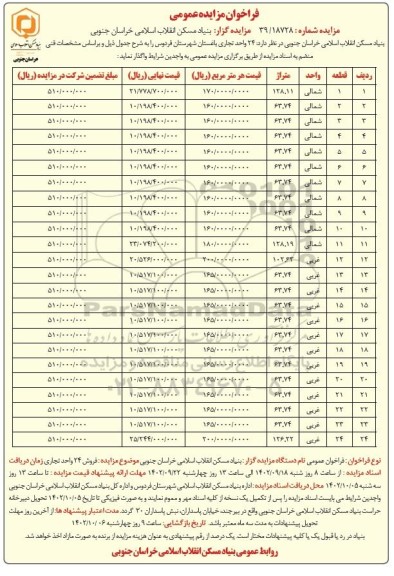 فراخوان مزایده عمومی
مزایده شماره: ۳۹/۱۸۷۲۸ مزایده گزار: بنیاد مسکن انقلاب اسلامی خراسان جنوبی
بنیاد مسکن انقلاب اسلامی خراسان جنوبی در نظر دارد: ۲۴ واحد تجاری باغستان شهرستان فردوس را به شرح جدول ذیل و براساس مشخصات فنی
منضم به اسناد مزایده از طریق برگزاری مزایده عمومی به واجدین شرایط واگذار نماید:
خراسان جنوبی
ردیف قطعه واحد متراژ قیمت هر متر مربع (ریال) قیمت نهایی (ریال) مبلغ تضمین شرکت در مزایده (ریال)
۱ ۱ شمالی ۱۲۸,۱۱ ۱۷۰/۰۰۰/۰۰۰ ۲۱/۷۷۸/۷۰۰/۰۰۰ ۵۱۰/۰۰۰/۰۰۰
۲ ۲ شمالی ۶۳,۷۴ ۱۶۰/۰۰۰/۰۰۰ ۱۰/۱۹۸/۴۰۰/۰۰۰ ۵۱۰/۰۰۰/۰۰۰
۳ ۳ شمالی ۶۳,۷۴ ۱۶۰/۰۰۰/۰۰۰ ۱۰/۱۹۸/۴۰۰/۰۰۰ ۵۱۰/۰۰۰/۰۰۰
۴ ۴ شمالی ۶۳,۷۴ ۱۶۰/۰۰۰/۰۰۰ ۱۰/۱۹۸/۴۰۰/۰۰۰ ۵۱۰/۰۰۰/۰۰۰
۵ ۵ شمالی ۶۳,۷۴ ۱۶۰/۰۰۰/۰۰۰ ۱۰/۱۹۸/۴۰۰/۰۰۰ ۵۱۰/۰۰۰/۰۰۰
۶ ۶ شمالی ۶۳,۷۴ ۱۶۰/۰۰۰/۰۰۰ ۱۰/۱۹۸/۴۰۰/۰۰۰ ۵۱۰/۰۰۰/۰۰۰
۷ ۷ شمالی ۶۳,۷۴ ۱۶۰/۰۰۰/۰۰۰ ۱۰/۱۹۸/۴۰۰/۰۰۰ ۵۱۰/۰۰۰/۰۰۰
۸ ۸ شمالی ۶۳,۷۴ ۱۶۰/۰۰۰/۰۰۰ ۱۰/۱۹۸/۴۰۰/۰۰۰ ۵۱۰/۰۰۰/۰۰۰
۹ ۹ شمالی ۶۳,۷۴ ۱۶۰/۰۰۰/۰۰۰ ۱۰/۱۹۸/۴۰۰/۰۰۰ ۵۱۰/۰۰۰/۰۰۰
۱۰ ۱۰ شمالی ۶۳,۷۴ ۱۶۰/۰۰۰/۰۰۰ ۱۰/۱۹۸/۴۰۰/۰۰۰ ۵۱۰/۰۰۰/۰۰۰
۱۱ ۱۱ شمالی ۱۲۸,۱۹ ۱۸۰/۰۰۰/۰۰۰ ۲۳/۰۷۴/۲۰۰/۰۰۰ ۵۱۰/۰۰۰/۰۰۰
۱۲ ۱۲ غربی ۱۰۲,۶۳ ۲۰۰/۰۰۰/۰۰۰ ۲۰/۵۲۶/۰۰۰/۰۰۰ ۵۱۰/۰۰۰/۰۰۰
۱۳ ۱۳ غربی ۶۳,۷۴ ۱۶۵/۰۰۰/۰۰۰ ۱۰/۵۱۷/۱۰۰/۰۰۰ ۵۱۰/۰۰۰/۰۰۰
۱۴ ۱۴ غربی ۶۳,۷۴ ۱۶۵/۰۰۰/۰۰۰ ۱۰/۵۱۷/۱۰۰/۰۰۰ ۵۱۰/۰۰۰/۰۰۰
۱۵ ۱۵ غربی ۶۳,۷۴ ۱۶۵/۰۰۰/۰۰۰ ۱۰/۵۱۷/۱۰۰/۰۰۰ ۵۱۰/۰۰۰/۰۰۰
۱۶ ۱۶ غربی ۶۳,۷۴ ۱۶۵/۰۰۰/۰۰۰ ۱۰/۵۱۷/۱۰۰/۰۰۰ ۵۱۰/۰۰۰/۰۰۰
۱۷ ۱۷ غربی ۶۳,۷۴ ۱۶۵/۰۰۰/۰۰۰ ۱۰/۵۱۷/۱۰۰/۰۰۰ ۵۱۰/۰۰۰/۰۰۰
۱۸ ۱۸ غربی ۶۳,۷۴ ۱۶۵/۰۰۰/۰۰۰ ۱۰/۵۱۷/۱۰۰/۰۰۰ ۵۱۰/۰۰۰/۰۰۰
۱۹ ۱۹ غربی ۶۳,۷۴ ۱۶۵/۰۰۰/۰۰۰ ۱۰/۵۱۷/۱۰۰/۰۰۰ ۵۱۰/۰۰۰/۰۰۰
۲۰ ۲۰ غربی ۶۳,۷۴ ۱۶۵/۰۰۰/۰۰۰ ۱۰/۵۱۷/۱۰۰/۰۰۰ ۵۱۰/۰۰۰/۰۰۰
۲۱ ۲۱ غربی ۶۳,۷۴ ۱۶۵/۰۰۰/۰۰۰ ۱۰/۵۱۷/۱۰۰/۰۰۰ ۵۱۰/۰۰۰/۰۰۰
۲۲ ۲۲ غربی ۶۳,۷۴ ۱۶۵/۰۰۰/۰۰۰ ۱۰/۵۱۷/۱۰۰/۰۰۰ ۵۱۰/۰۰۰/۰۰۰
۲۳ ۲۳ غربی ۶۳,۷۴ ۱۶۵/۰۰۰/۰۰۰ ۱۰/۵۱۷/۱۰۰/۰۰۰ ۵۱۰/۰۰۰/۰۰۰
۲۴ ۲۴ غربی ۱۲۶,۲۲ ۲۰۰/۰۰۰/۰۰۰ ۲۵/۲۴۴/۰۰۰/۰۰۰ ۵۱۰/۰۰۰/۰۰۰
ParsNamadData
۰۲۱-۸۸۳۴۹۶۷۰-۵
نوع فراخوان: فراخوان عمومی نام دستگاه مزایده گزار: بنیاد مسکن انقلاب اسلامی خراسان جنوبی موضوع مزایده: فروش ۲۴ واحد تجاری زمان دریافت
اسناد مزایده: از ساعت ۸ روز شنبه ۱۴۰۲/۰۹/۱۸ الی ساعت ۱۳ روز چهارشنبه ۱۴۰۲/۰۹/۲۲ مهلت ارائه پیشنهاد قیمت مزایده: تا ساعت ۱۳ روز
سه شنبه ۱۴۰۲/۱۰/۰۵ محل دریافت اسناد مزایده: اداره بنیاد مسکن انقلاب اسلامی شهرستان فردوس و اداره کل بنیاد مسکن انقلاب اسلامی خراسان جنوبی
واجدین شرایط می بایست اسناد مزایده را پس از تکمیل یک نسخه از کلیه اسناد مهر و موم نمایند و به صورت فیزیکی تا تاریخ ۱۴۰۲/۱۰/۰۵ تحویل دبیرخانه
حراست بنیاد مسکن انقلاب اسلامی خراسان جنوبی واقع در بیرجند، خیابان پاسداران، نبش پاسداران ۳۰ گردد. مدت اعتبار پیشنهاد ها: از آخرین روز مهلت
تحویل پیشنهادات به مدت سه ماه معتبر باشد. تاریخ بازگشایی: ساعت ۹ روز چهارشنبه ۱۴۰۲/۱۰/۰۶
بنیاد در رد یا قبول یک یا کلیه پیشنهادات مختار است. یک درصد از رقم پیشنهادی به عنوان هزینه مزایده از برنده به صورت مازاد اخذ خواهد شد.
روابط عمومی بنیاد مسکن انقلاب اسلامی خراسان جنوبی